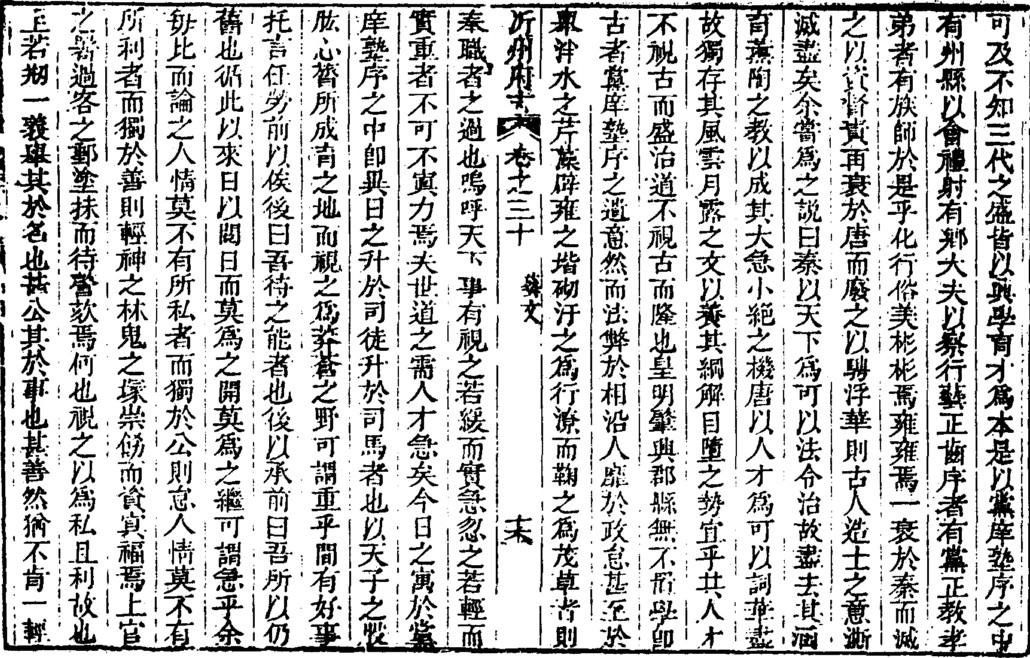 可及不知三代之盛皆以興學育才爲本是以黨庠塾序之中
有州縣以會禮射有鄉大夫以察行藝正齒序者有黨正教孝
弟者有族師於是乎化行俗美彬彬焉雍雍焉一衰於秦而滅
之以資督責再衰於唐而廢之以騁浮華則古人造士之意澌
滅盡矣余嘗爲之說曰秦以天下爲可以法令治故盡去其涵
育薰陶之教以成其大急小絶之機唐以人才爲可以詞華盡
故獨存其風雲月露之文以養其綱解目墮之勢宜乎其人才
不視古而盛治道不視古而隆也皇明肇興郡縣無不有學卽
古者黨庠塾序之遺意然而法弊於相沿人寵於政怠甚至於
泮水之芹藻辟雍之堦砌汙之爲行潦而鞠之爲茂草者則
沂州府志 卷之三十 藝文
奉職者之過也嗚呼天下事有視之若緩而實急忽之若輕而
實重者不可不寅力焉夫世道之需人才急矣今日之寓於黨
庠塾序之中卽異日之升於司徒升於司馬者也以天子之股
肱心膂所成育之地而視之爲莽蒼之野可謂重乎間有好事
托言任勞前以俟後曰吾待之能者也後以承前曰吾所以仍
舊也循此以來日以閱日而莫爲之開莫爲之繼可謂急乎余
每比而論之人情莫不有所私者而獨於公則怠人情莫不有
所利者而獨於善則輕神之林鬼之塚祟飭而資寘福焉上官
之署過客之郵塗抹而待謦欬焉何也視之以爲私且利故也
至若刱一義舉其於名也甚公其於事也甚善然猶不肯一輕